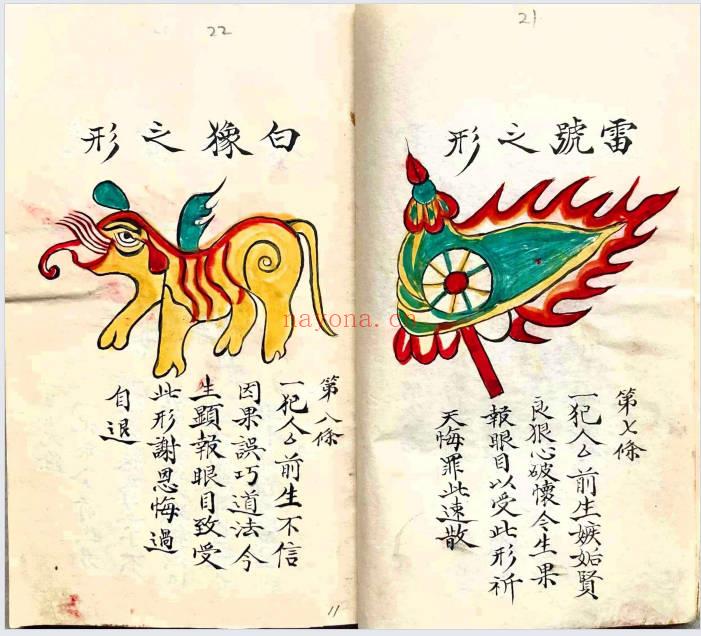 21
雷號之形
第七條
一犯人厶前生嫉妬賢
良狠心破懷今生果
報眼目以受此形祈
天悔罪此速散
22
白之形
第八條
一犯人厶前生不信
因果誤巧道法今
生顯報眼目致受
此形謝恩悔過
自退
11
nayona.cn